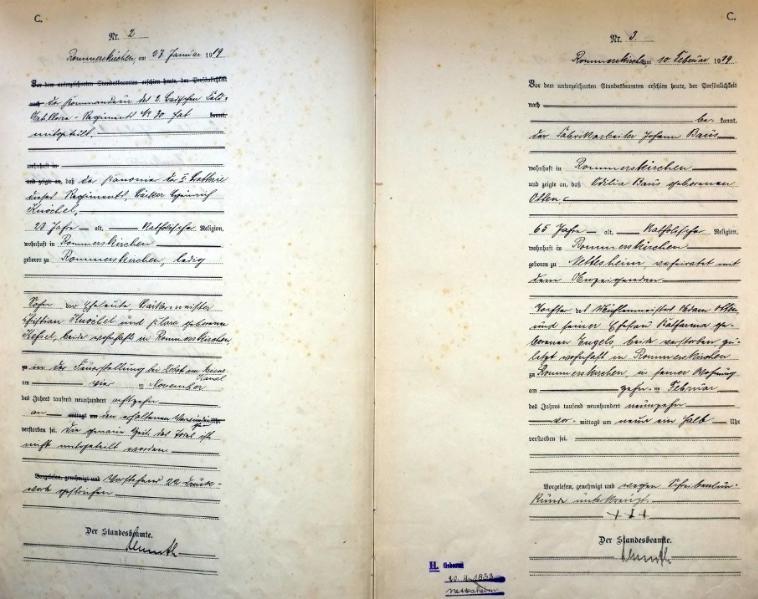 C.
Nr. 2
Rommerskirchen, am 27 Januar 1919
Vor dem unterzeichneten Standesbeamten erschien heute, der Persönlichkeit
nach der Kommandeur des 2. Badischen Feld-
Artillerie-Regiments Nr 30 hat kannt,
mitgeteilt.
wohnhaft in
und zeigte an, daß der Kanonier der 5. Batterie
dieses Regiments, Bäcker Heinrich
Knöchel,
22 Jahre alt, Katholischer Religion,
wohnhaft in Rommerskirchen
geboren zu Rommerskirchen, ledig
Sohn der Eheleute Bäckermeister
Christian Knöchel und Klara geborene
beide wohnhaft in Rommerskirchen
zu in der Feuerstellung bei
Kanal
am vier November
des Jahres tausend neunhundert achtzehn
an mittags den erhaltenen
verstorben sei. Die genaue Zeit des Todes ist
nicht mitgeteilt worden.
Vorgelesen, genehmigt und Vorstehend 22 Druck-
worte gestrichen
Der Standesbeamte.
C.
Nr. 3
Rommerskirchen am 10 Februar 1919
Vor dem unterzeichneten Standesbeamten erschien heute, der Persönlichkeit
nach
be kannt,
der Fabrikarbeiter Johann Baus
wohnhaft in Rommerskirchen
und zeigte an, daß Odilia Baus geborenen
Otten,
65 Jahre alt, Katholischer Religion,
wohnhaft in Rommerskirchen
geboren zu Nettesheim, verheiratet mit
dem Anzeigenden
Tochter des Mühlenmeisters Adam Otten
und seiner Ehefrau Katharina ge-
borenen Engels, beide verstorben zu-
letzt wohnhaft in Rommerskirchen
zu Rommerskirchen, in seiner Wohnung
am zehn Februar
des Jahres tausend neunhundert neunzehn
vor mittags um neun ein halb Uhr
verstorben sei.
Vorgelesen, genehmigt und wegen Schreibunkun-
kunde unterkreuzt.
+++
Der Standesbeamte.
H. Geboren
1853
Nettesheim